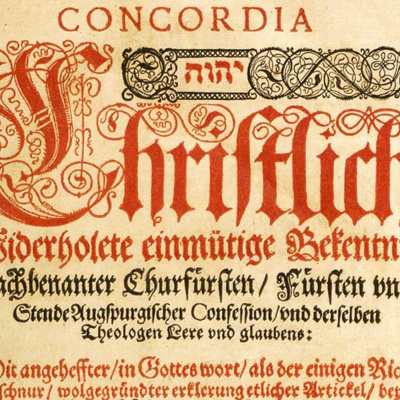 CONCORDIA
יהוה
Christlich
Widerholete einmütige Bekentn
achbenanter Churfürsten / Fürsten vn
Stende Augspurgischer Confession / vnd derselben
Theologen Lere vnd glaubens:
Mit angeheffter / in Gottes wort / als der einigen Ric
schnur / wolgegründter erklerung etlicher Artickel / bey